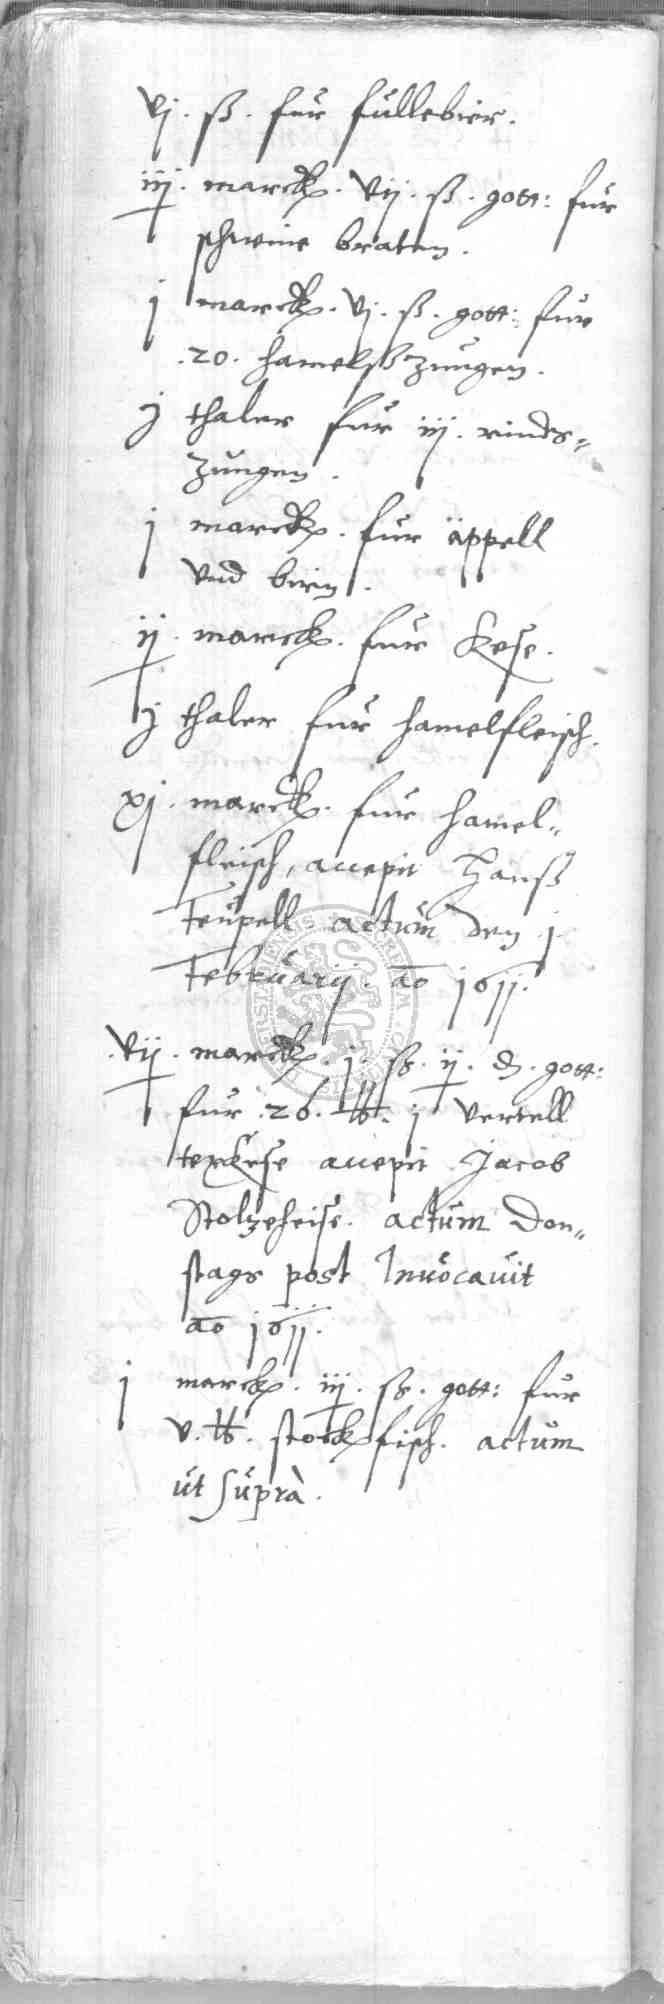 vj. ß. fur fullebier.
iij. marck. vij. ß. gott: fur
schweine braten.
j marck. vj. ß. gott: fur
.20. hamelßzungen.
j thaler fur iij. rinds=
zungen.
j marck. fur äppell
vnd birn.
ij. marck. fur Kese.
j thaler fur hamelfleisch.
xj. marck. fur hamel=
fleisch, accepit Hanß
Teupell. actum den j.
Februarij. ao 1611.
.vij. marck. j. ß. ij. d. gott:
fur .26. lb. j vertell
texkese accepit Jacob
Stolzeheise. actum Don=
stags post Invocavit
ao 1611.
j marck. iij. ß. gott: fur
v. lb. stockfisch. actum
ut suprà.